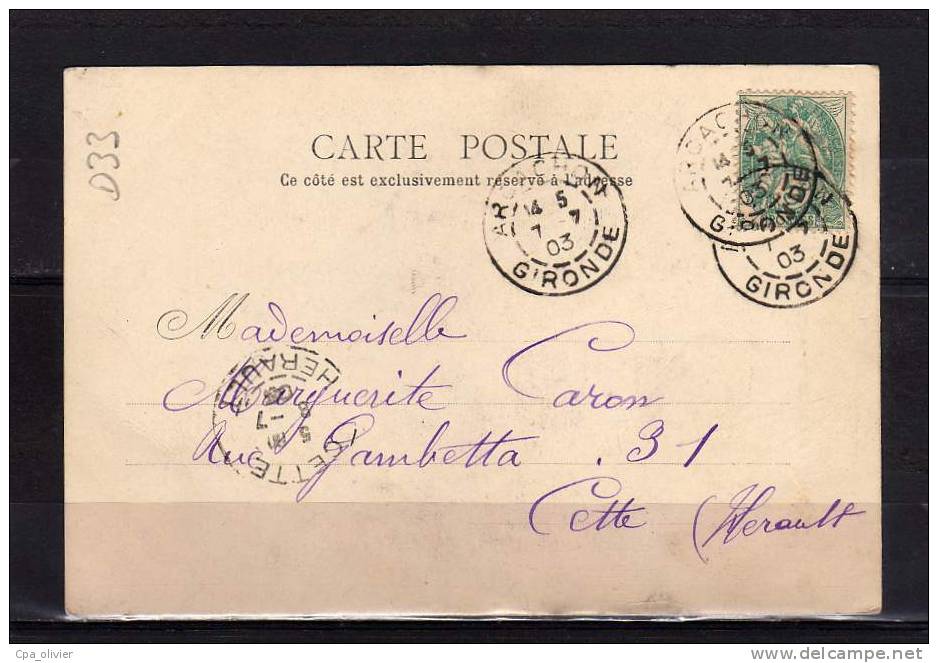 D33
CARTE POSTALE
Ce côté est exclusivement réservé à l'adresse
ARCACHON
14 5
7 - 7
03
GIRONDE
ARCACHON
GIRONDE
03
GIRONDE
Mademoiselle
Marguerite Caron
Rue Gambetta . 31
Cette (Herault
CETTE
HERAULT
Cpa_olivier
www.delcampe.net